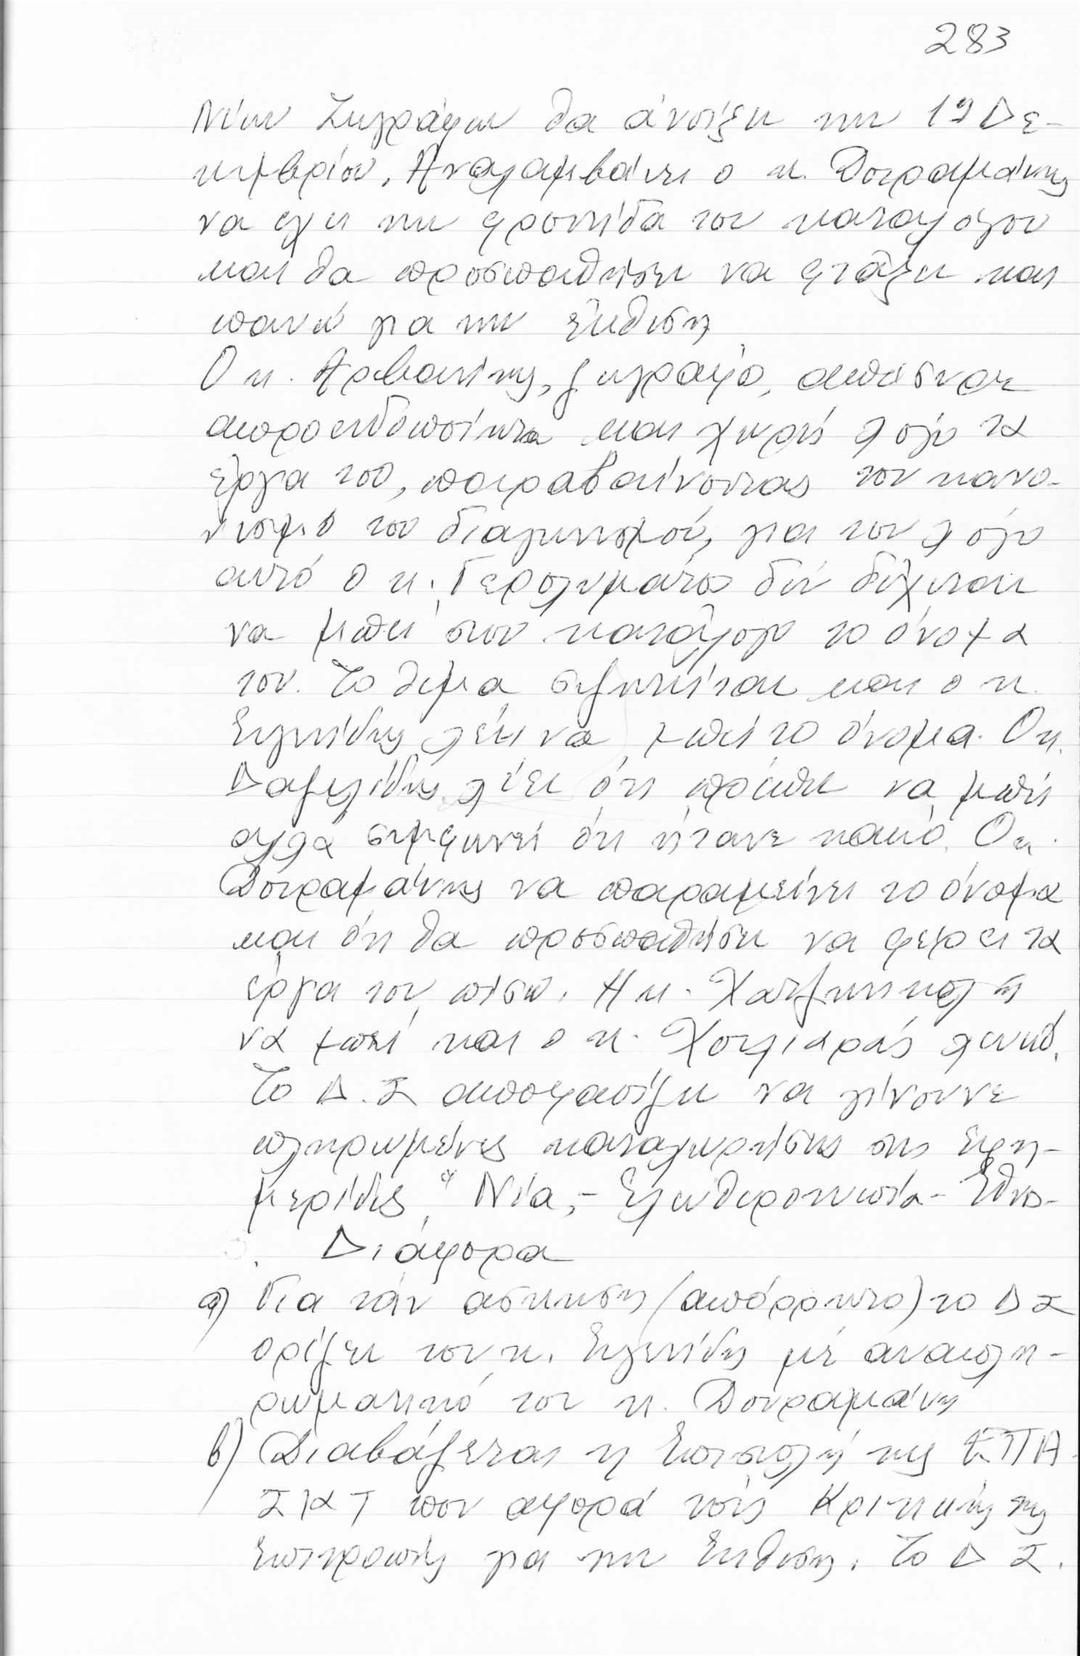 283
Νέων Ζωγράφων θα άνοίξει την 19 Δε-
κεμβρίου. Αναλαμβάνει ο κ. Δουραμάνης
να έχει την φροντίδα του καταλόγου
και θα προσπαθήσει να φτάξει και
πανώ για την έκθεση
Ο κ. Αρβανίτης, ζωγράφο, απόσυρε
απροειδοποίητα και χωρίς λόγο τα
έργα του, παραβαίνοντας τον κανο-
νισμό του διαγωνισμού, για τον λόγο
αυτό ο κ. Γερολυμάτο δεν δέχεται
να μπει στον κατάλογο το όνομα
του. Το θέμα συζητείται και ο κ.
λέει να μπει το όνομα. Ο κ.
λέει ότι πρέπει να μπεί
αλλά συμφωνεί ότι ήτανε κακό. Ο κ.
Δουραμάνης να παραμείνει το όνομα
και ότι θα προσπαθήση να φέρει τα
έργα του πίσω. Η κ.
να μπεί και ο κ. Χουλιαράς λευκό.
Το Δ.Σ αποφασίζει να γίνουνε
πληρωμένες καταχωρήσεις στις έφη-
μερίδες "Νέα,- Ελευθεροτυπία - Εθνο-
Διάφορα
α) Για τάν ασκηση (απόρρητο) το ΔΣ
ορίζει τον κ. με αναπλη-
ρωματικό τον κ. Δουραμάνη
β) Διαβάζεται η Επιστολή της ΕΠΑ
ΣΚΤ που αφορά τούς Κριτικής της
Επιτροπής για την Έκθεση. Το Δ Σ.